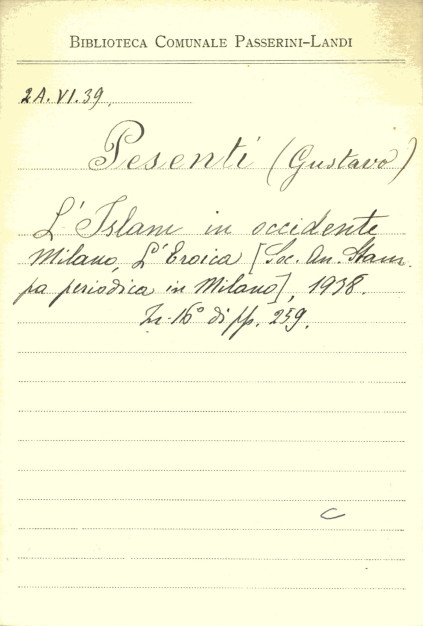 BIBLIOTECA COMUNALE PASSERINI-LANDI
2A.VI.39.
Pesenti (Gustavo)
L'Islam in occidente
Milano, L'Eroica [Soc. An. Stam-
pa periodica in Milano], 1938.
In-16° di pp. 259.
C